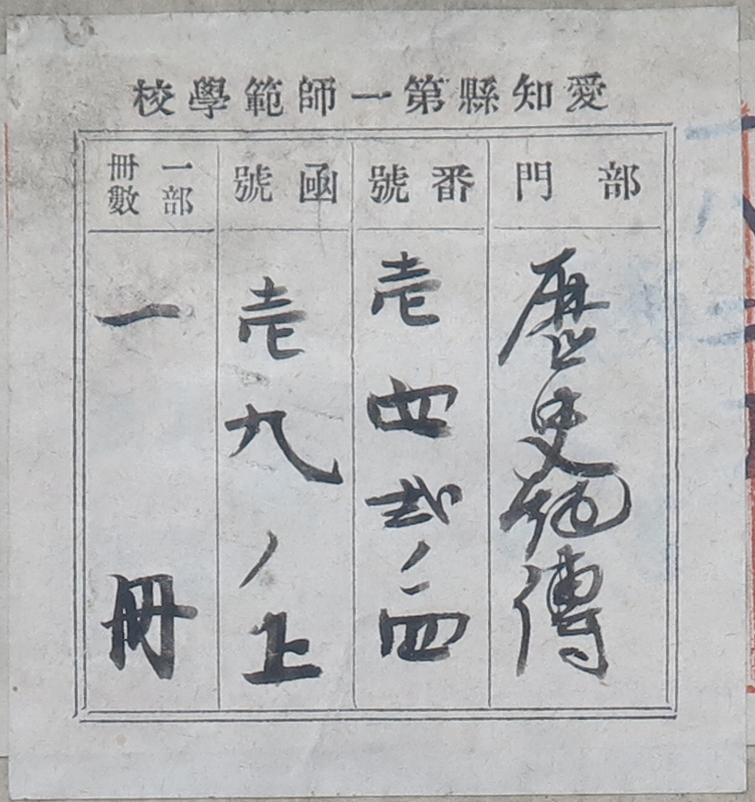 愛知縣第一師範學校
部門
歴史傳
番號
壱四弐ノ一四
函號
壱九ノ上
一部
冊數
一冊